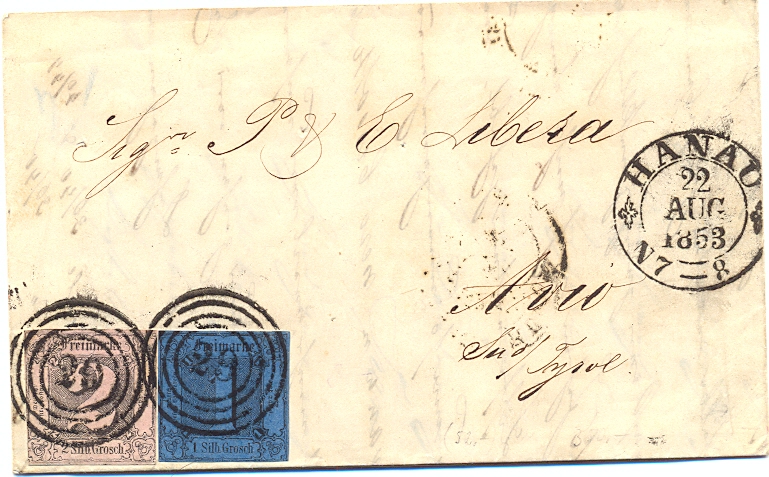 Sigri P & E Libera
HANAU
22
AUG
1853
N 7 – 8
Avio
Sud/Tyrol
Freimarke
2 Silb. Grosch
Freimarke
1 Silb. Grosch